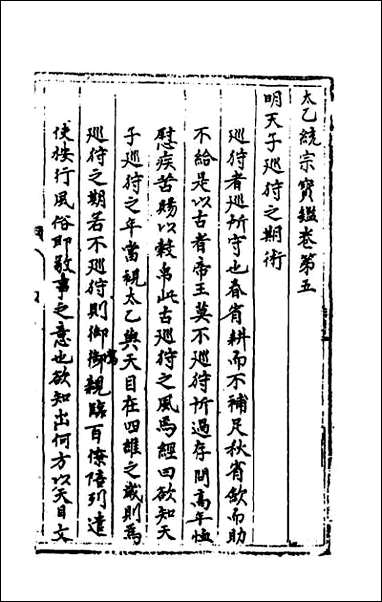 太乙統宗寶鑑卷第五
明天子巡狩之期術
巡狩者巡所守也春省耕而不補足秋省歛而助
不給是以古者帝王莫不巡狩所過存問高年恤
慰疾苦賜以穀帛此古巡狩之風焉經曰欲知天
子巡狩之年當視太乙與天目在四維之歲則為
巡狩之期若不巡狩則御親臨百僚陪列遣
使按行風俗即敬事之意也欲知出何方以天目文